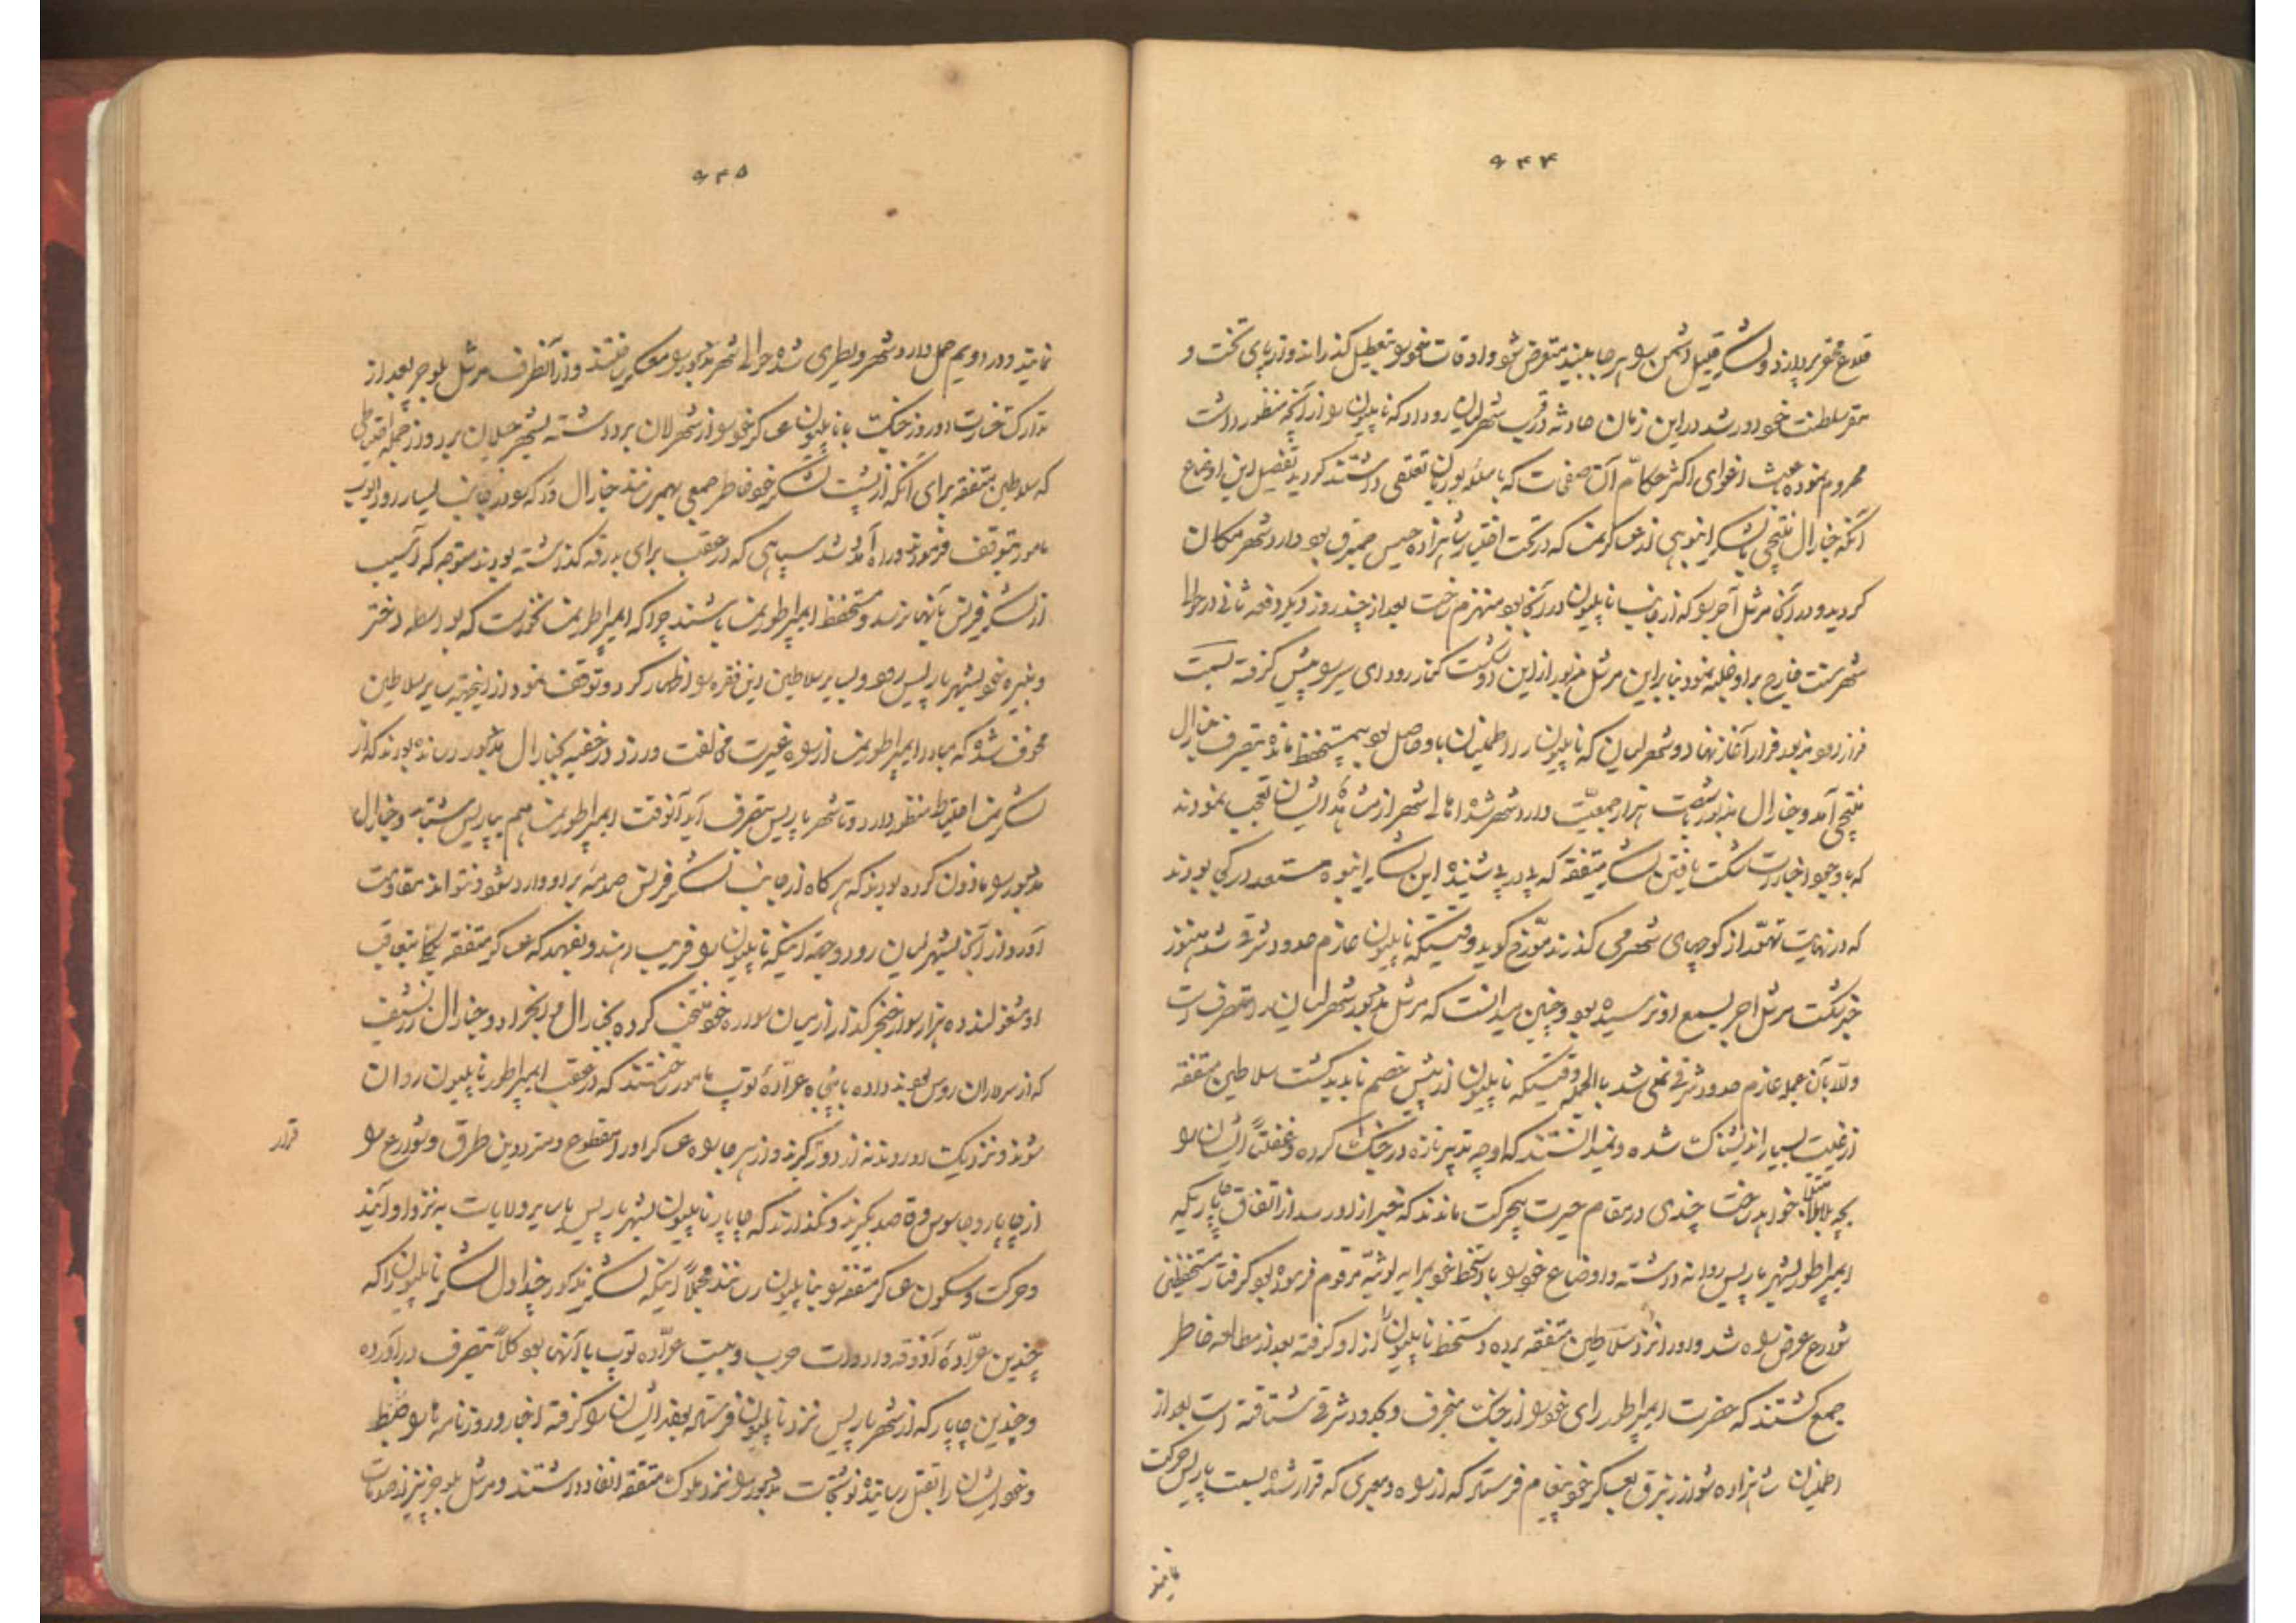 ۶۴۴
قلاع محقر پردازد و لشکر قلیل دشمن را هر جا ببیند متعرض شود و اوقات خود را بتعطیل گذراند و از پای تخت و
مقر سلطنت خود دور شد در این زمان حادثه در قرب شهر لیان رو داد که ناپلیون را از آنچه منظور داشت
محروم نموده باعث اغوای اکثر حکام آن صفحات که با سلسله بوربان تعلقی داشتند گردید تفصیل این اوضاع
آنکه جنارال بنتچی با لشکر انبوهی از عساکر نمسه که در تحت اختیار شاهزاده حیس صبرق بود وارد شهر مکان
گردید و در آنجا مرشل آجر را که از جانب ناپلیون در آنجا بود منهزم ساخت بعد از چند روز دیگر دفعه ثانی در حوالی
شهر سنت جارج بر او غلبه نمود بنابر این مرشل مزبور از این دو شکست کنار رود ایسیر را پیش گرفته بسمت
فرار نهاد و شهر لیان که ناپلیون را اطمینان باو حاصل بود بتصرف جنارال
بنتچی آمد و جنارال مزبور با شصت هزار جمعیت وارد شهر شد اهالی شهر از مشاهده ایشان تعجب نمودند
که با وجود اخبارات شکست یافتن لشکر متفقه که پی در پی شنیده این لشکر انبوه مستعد در کجا بودند
که در نهایت تهمد از کوچهای شهر می گذرند مورخ گوید وقتیکه ناپلیون عازم حدود شرقی شد هنوز
خبر شکست مرشل اجر بسمع او نرسیده بود و چنین میدانست که مرشل مذکور شهر لیان را متصرف است
والا بآن عجله عازم حدود شرقی نمی شد بالجمله وقتیکه ناپلیون از پیش خصم ناپدید گشت سلاطین متفقه
از غیبت بسیار اندیشناک شده و نمیدانستند که او چه تدبیر تازه در جنگ کرده و غفلتاً ایشان را
بچه بلا مبتلا خواهد ساخت چندی در مقام حیرت بیحرکت ماندند که خبر از او رسد از اتفاق چاپاریکه
ایمپراطور بشهر پاریس روانه داشته و اوضاع خود را با دستخط خود برایه لوئیه مرقوم فرموده بود گرفتار مستحفظین
شوارع عرض راه شد و او را نزد سلاطین متفقه برده دستخط ناپلیون را از او گرفته بعد از مطالعه خاطر
جمع گشتند که حضرت ایمپراطور رای خود را از جنگ منحرف و بحدود شرقی شتافته است بعد از
اطمینان شاهزاده شوارزنبرق بعساکر خود پیغام فرستاد که از راه و معبری که قرار شده بسمت پاریس حرکت
نمایند
۶۴۵
نمایند و در دویم حمل وارد شهر ویطری شده حوالی شهر مذکور را معسکر ساختند و از آنطرف مرشل بلوجر بعد از
تدارک خسارت دو روز جنگ با ناپلیون عساکر خود را از شهر لان برداشته بشهر جلان برد و از جمله احتیاطی
که سلاطین متفقه برای آنکه از پشت لشکر خود خاطر جمعی بهم رسانند جنارال دکه را در جانب یسار رود ایوب
مامور بتوقف فرمودند و راه آمد شد سپاهی که در عقب برای بدرقه گذاشته بودند متوجه که آسیب
از لشکر فرنس بآنها نرسد و مستحفظ ایمپراطور نمسه باشند چرا که ایمپراطور نمسه نخواست که بواسطه دختر
و نبیره خود بشهر پاریس رود و بسایر سلاطین این فقره را اظهار کرد و توقف نمود از اینجهة سایر سلاطین
مخوف شده که مبادا ایمپراطور نمسه از راه غیرت مخالفت ورزد در خفیه بجنارال مذکور رسانده بودند که از
لشکر نمسه احتیاط منظور دارد و تا شهر پاریس بتصرف آید آنوقت ایمپراطور نمسه هم بپاریس شتابد و جنارال
مذبور را ماذون کرده بودند که هر گاه از جانب لشکر فرنس صدمه بر او وارد شود و نتواند مقاومت
آورد از آنجا بشهر لیان رود و جهة اینکه ناپلیون را فریب دهند و بفهمد که عساکر متفقه یکجا بتعاقب
او مشغولند ده هزار سوار خنجر گذار از میان سواره خود منتخب کرده بجنارال وینجراد و جنارال زرنشیف
که از سرداران روس بودند داده با پنجاه عراده توپ مامور ساختند که در عقب ایمپراطور ناپلیون روان
شوند و نزدیک او روند نه از دور گیرند و از هر جا راه عساکر او را مقطوع و مترددین طرق و شوارع را
از چاپار و جاسوس و قاصد بگیرند و نگذارند که چاپار ناپلیون بشهر پاریس یا سایر ولایات به نزد او آیند
قرار
و حرکت و سکون عساکر متفقه را بناپلیون رسانند مجملاً اینکه لشکر مذکور چنداول لشکر ناپلیون را که
چندین عراده آذوقه و ادوات حرب و بیست عراده توپ با آنها بود کلاً بتصرف درآورده
و چندین چاپار که از شهر پاریس نزد ناپلیون فرستاده بودند ایشان را گرفته اخبار و روزنامه ها را ضبط
و خود ایشان را بقتل رسانیده نوشتجات مذبور را نزد ملوک متفقه انفاد داشتند و مرشل بلوجر نیز از صدمات